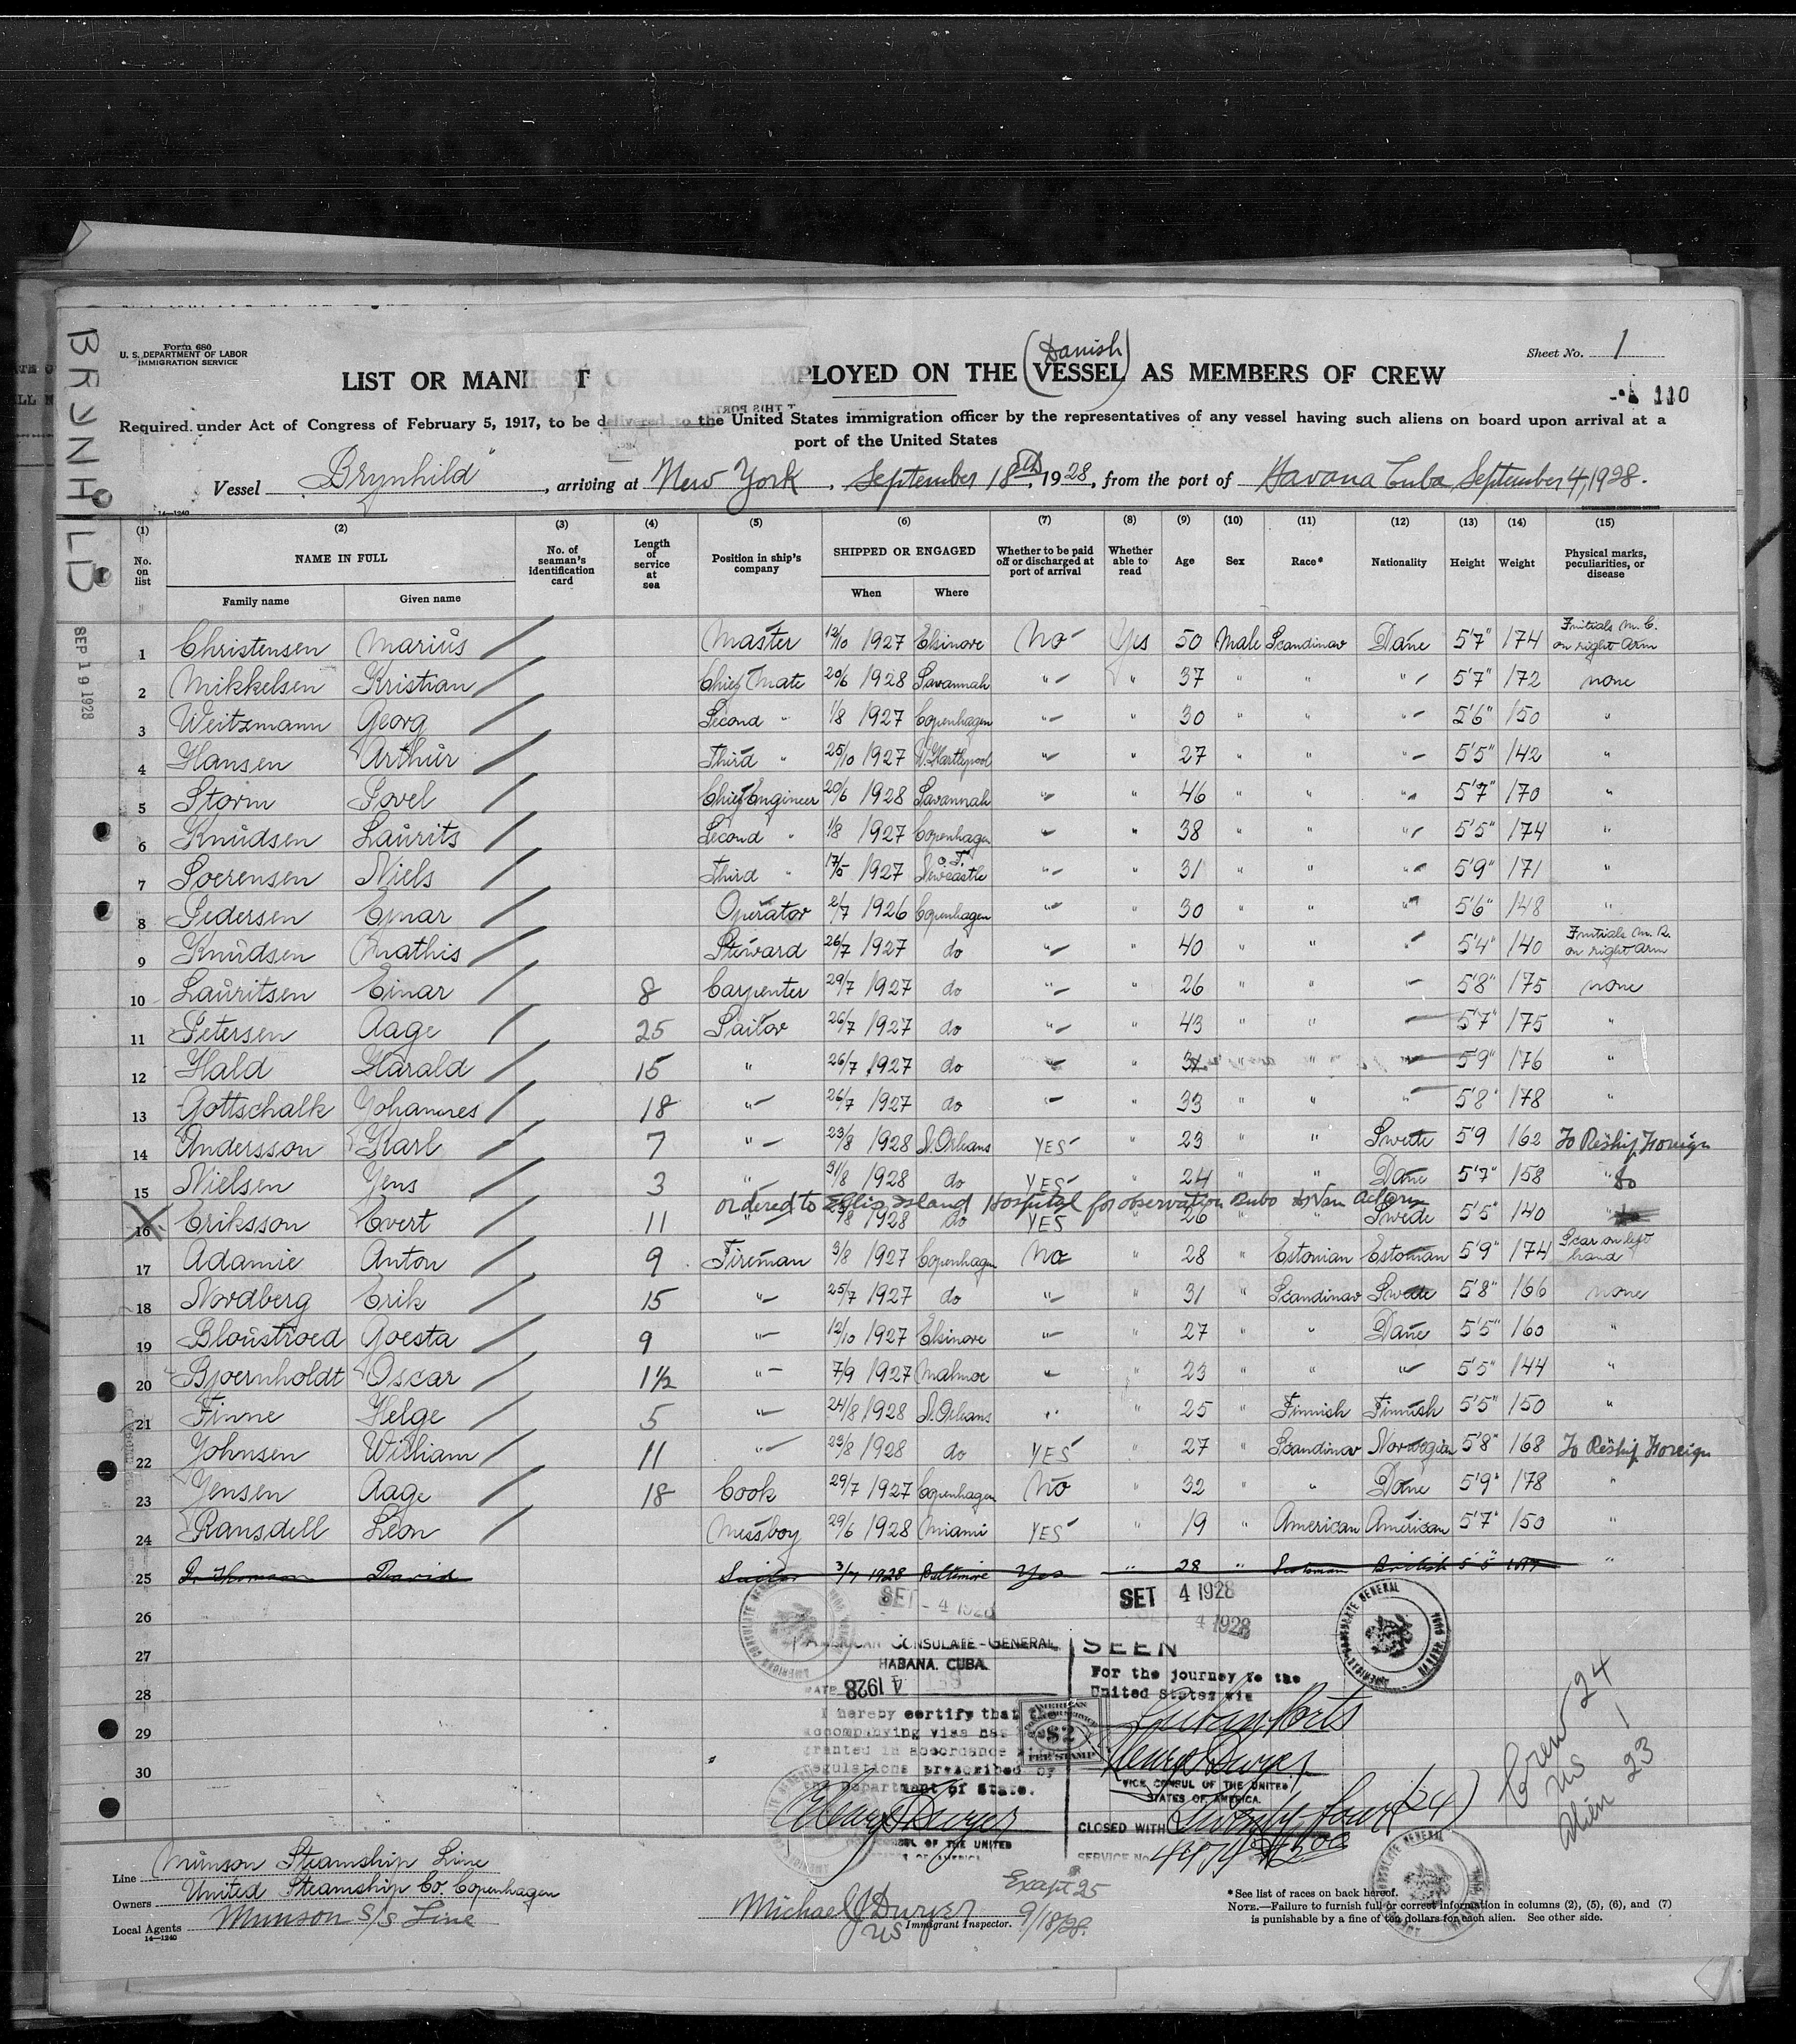 Form 680
U. S. DEPARTMENT OF LABOR
IMMIGRATION SERVICE
Sheet No. 1
110
(Danish)
LIST OR MANIFEST OF ALIENS EMPLOYED ON THE VESSEL AS MEMBERS OF CREW
Required under Act of Congress of February 5, 1917, to be delivered to the United States immigration officer by the representatives of any vessel having such aliens on board upon arrival at a
port of the United States
Vessel "Brynhild", arriving at New York, September 18th, 1928, from the port of Havana Cuba September 4, 1928.
BRYNHILD
SEP 19 1928
14—1240
(1) (2) (3) (4) (5) (6) (7) (8) (9) (10) (11) (12) (13) (14) (15)
No. on list NAME IN FULL Family name Given name No. of seaman's identification card Length of service at sea Position in ship's company SHIPPED OR ENGAGED When Where Whether to be paid off or discharged at port of arrival Whether able to read Age Sex Race* Nationality Height Weight Physical marks, peculiarities, or disease
1 Christensen Marius Master 12/10 1927 Elsinore No Yes 50 Male Scandinav Dane 5'7" 174 Initials M.C. on right arm
2 Mikkelsen Kristian Chief Mate 20/6 1928 Savannah " " 37 " " " 5'7" 172 none
3 Weitzmann Georg Second " 1/8 1927 Copenhagen " " 30 " " " 5'6" 150 "
4 Hansen Arthur Third " 25/10 1927 W. Hartlepool " " 27 " " " 5'5" 142 "
5 Storm Povel Chief Engineer 20/6 1928 Savannah " " 46 " " " 5'7" 170 "
6 Knudsen Laurits Second " 1/8 1927 Copenhagen " " 38 " " " 5'5" 174 "
7 Soerensen Niels Third " 17/5 1927 Newcastle o. T. " " 31 " " " 5'9" 171 "
8 Pedersen Ejnar Operator 2/7 1926 Copenhagen " " 30 " " " 5'6" 148 "
9 Knudsen Mathis Steward 26/7 1927 do " " 40 " " " 5'4" 140 Initials M.K. on right arm
10 Lauritsen Einar 8 Carpenter 29/7 1927 do " " 26 " " " 5'8" 175 none
11 Petersen Aage 25 Sailor 26/7 1927 do " " 43 " " " 5'7" 175 "
12 Hald Harald 15 " 26/7 1927 do " " 31 " " " 5'9" 176 "
13 Gottschalk Johannes 18 " 26/7 1927 do " " 33 " " " 5'8" 178 "
14 Andersson Karl 7 " 23/8 1928 N. Orleans YES " 23 " " Swede 5'9 162 To Reship Foreign
15 Nielsen Jens 3 " 31/8 1928 do YES " 24 " " Dane 5'7" 158 " do
ordered to Ellis Island Hospital for observation
16 Eriksson Evert 11 " /8 1928 do YES " 26 " " Swede 5'5" 140
17 Adamie Anton 9 Fireman 3/8 1927 Copenhagen No " 28 " Estonian Estonian 5'9" 174 Scar on left hand
18 Nordberg Erik 15 " 25/7 1927 do " " 31 " Scandinav Swede 5'8" 166 none
19 Bloustroed Goesta 9 " 12/10 1927 Elsinore " " 27 " " Dane 5'5" 160 "
20 Bjoernholdt Oscar 1½ " 7/9 1927 Malmoe " " 23 " " " 5'5" 144 "
21 Finne Helge 5 " 24/8 1928 N. Orleans " " 25 " Finnish Finnish 5'5" 150 "
22 Johnsen William 11 " 23/8 1928 do YES " 27 " Scandinav Norwegian 5'8" 168 To Reship Foreign
23 Jensen Aage 18 Cook 29/7 1927 Copenhagen No " 32 " " Dane 5'9" 178 "
24 Ransdell Leon Messboy 29/6 1928 Miami YES " 19 " American American 5'7" 150 "
25 David Sailor 3/7 1928 Baltimore Yes " 28 " Scotsman British 5'5" "
26
27
28
29
30
SET - 4 1928
SET 4 1928
4 1928
AMERICAN CONSULATE-GENERAL
HABANA. CUBA.
DATE 4 1928
I hereby certify that the
accompanying visa has
granted in accordance
regulations prescribed by
the Department of State.
Henry Dwyer
CONSUL OF THE UNITED
STATES OF AMERICA
AMERICAN CONSULATE GENERAL
SEEN
For the journey to the
United States via
Cuban Ports
Henry Dwyer
VICE CONSUL OF THE UNITED
STATES OF AMERICA.
CLOSED WITH Twenty-four (24)
SERVICE No.
AMERICAN
$2
PER STAMP
Crew 24
US 1
Alien 23
Line Munson Steamship Line
Owners United Steamship Co. Copenhagen
Local Agents Munson S/S Line
14—1240
Michael J Dwyer
US Immigrant Inspector.
Except 25
9/18/28.
*See list of races on back hereof.
NOTE.—Failure to furnish full or correct information in columns (2), (5), (6), and (7)
is punishable by a fine of ten dollars for each alien. See other side.